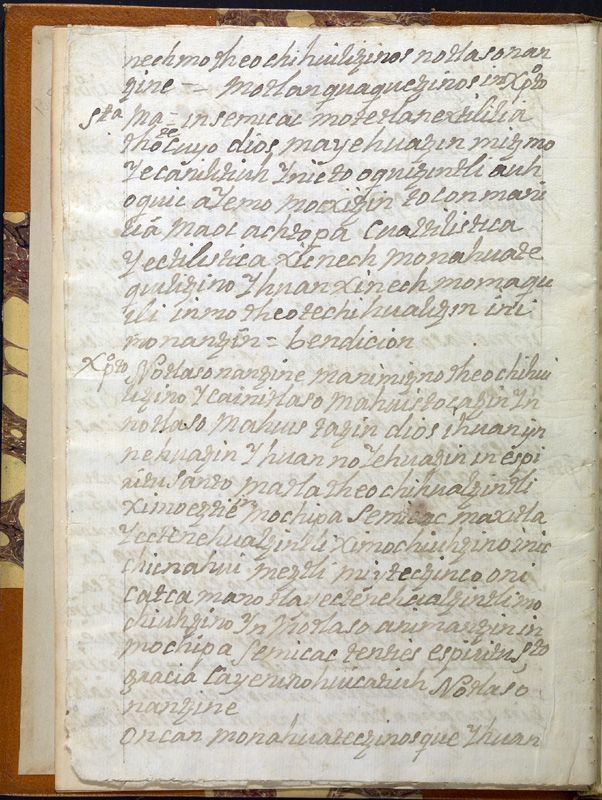 nechmotheochihuilizinos notlasonan
zine — motlanquaquezinos in Xpto
Sta Ma = in semicac motetlanextililia
thoteCuiyo dios mayehuazin mizmo
Yecanilziuh Ynic to oquizintli auh
oquic aYemo mocxizin toconmani
lia Maoc achtopa Cualtilistica
Yectilistica xinech monahuate
quilizino Yhuan xinech momaqui
ili inmotheotechihualizin ini
monanzin = bendicion
Xpto Notlasonanzine manimizno theochihui
lizino Yca initlaso Mahuistocazin Yn
notlaso Mahuistazin dios ihuan yn
nehuazin Yhuan no Yehuazin in espi
ritu Santo matlatheochihualzintli
ximoeztie mochipa Semicac maxitla
Yectenehualzintli ximochiuhzino inic
chicnahui meztli miitectzinco oni
catca ma no tlayectenehualzintli mo
chiuhzino Yn Notlaso animanzin in
mochipa Semicac tenties espiritu Sto
gracia Ca yenisnohuicatiuh Notlaso
nanzine
Oncan monahuatequizinosque Yhuan